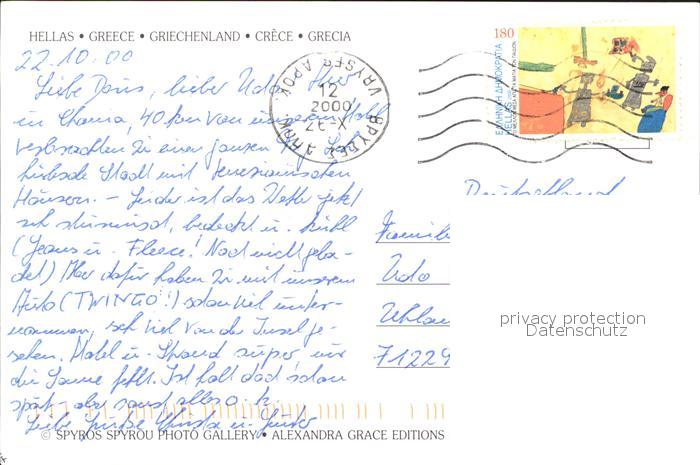 HELLAS • GREECE • GRIECHENLAND • CRÈCE • GRECIA
22.10.00
Liebe Doris, lieber Udo. Hier
in Chania, 40 km von unserem Hotel
verbrachten wir einen ganzen Tag. Sehr
hübsche Stadt mit venezianischen
Häusern. – Leider ist das Wetter jetzt
sehr stürmisch, bedeckt u. kühl
(Jeans u. Fleece! Noch nicht geba-
det) Aber dafür haben wir mit unserem
Auto (TWINGO!) schon viel unter-
nommen, sehr viel von der Insel ge-
sehen. Hotel u. Strand super, nur
die Sonne fehlt. Ist halt doch schon
spät, aber sonst alles o.k.
Liebe Grüße u.
© SPYROS SPYROU PHOTO GALLERY • ALEXANDRA GRACE EDITIONS
12
2000
180
ΕΛΛΗΝΙΚΗ ΔΗΜΟΚΡΑΤΙΑ
HELLAS
Deutschland
Famili
Udo
Uhlan
71229
privacy protection
Datenschutz